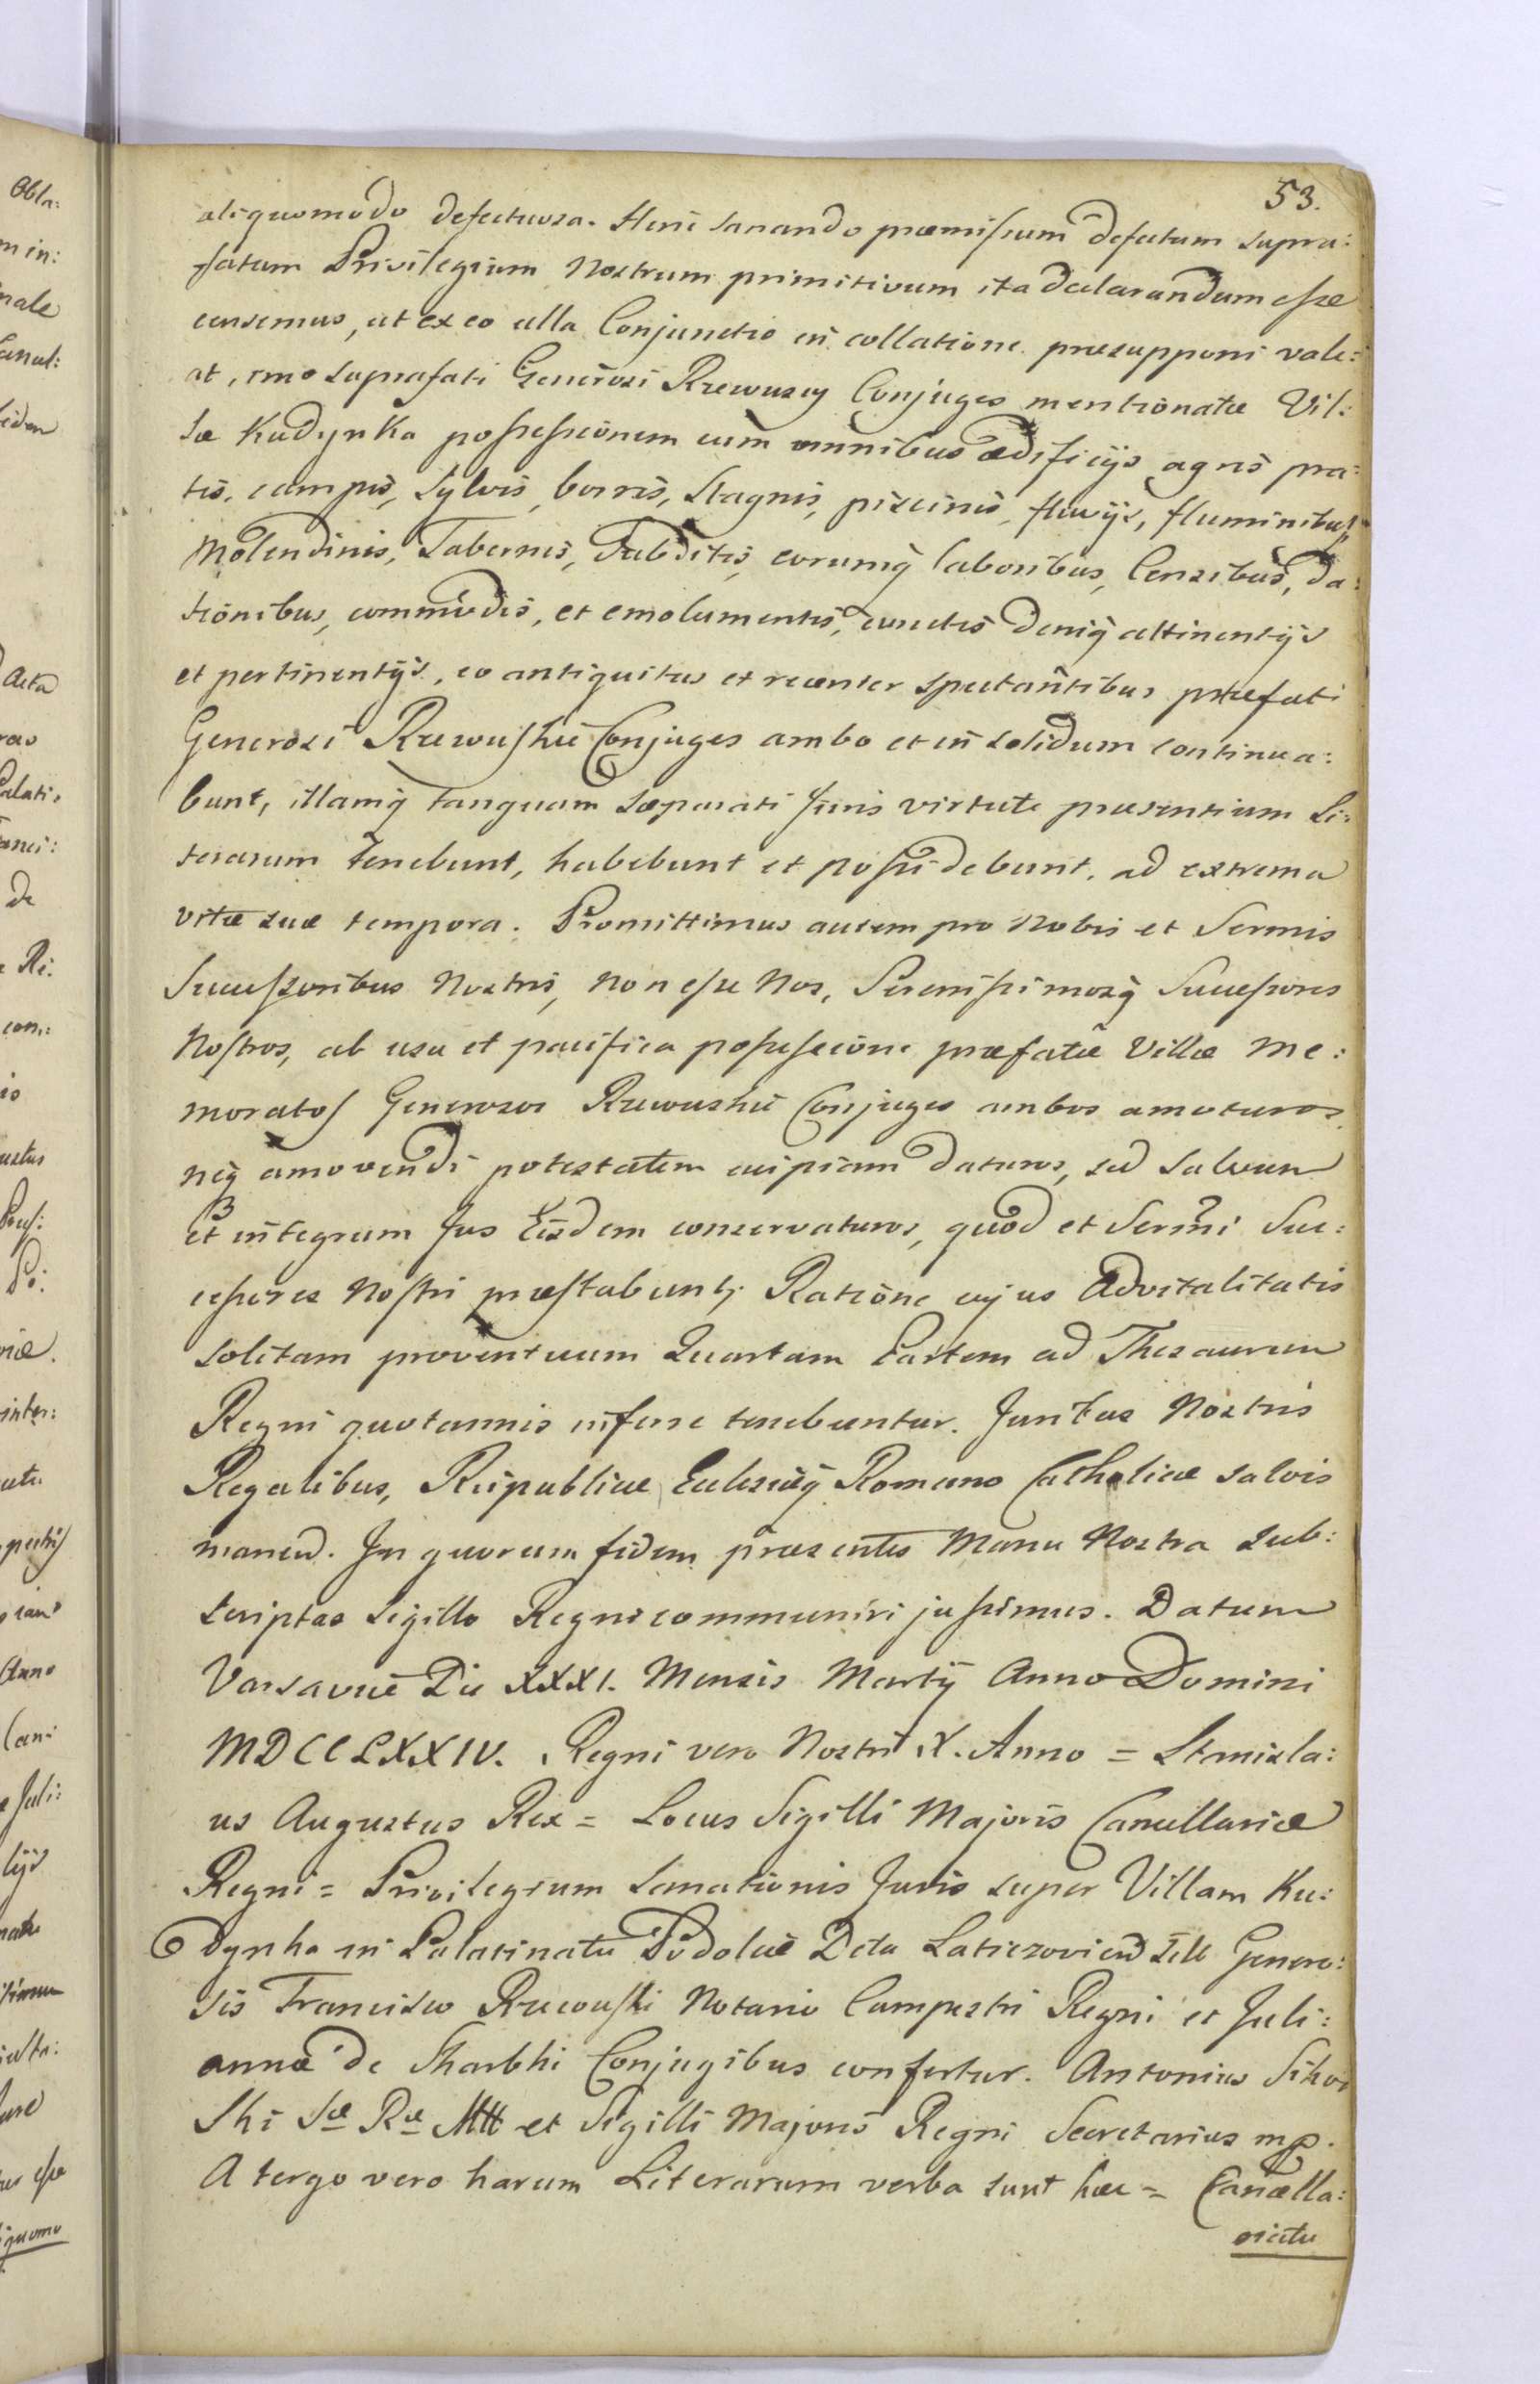 53.
aliquomodo defectuosa. Hinc sanando præmissum defectum supra:
fatum Privilegium Nostrum primitivum ita declarandum esse
censemus, ut ex eo ulla Conjunctio in collatione præsupponi vale:
at, imo suprafati Generosi Rzewuscy Conjuges mentionatæ Vil:
læ Kudynka possessionem cum omnibus ædificijs agris pra:
tis, campis, sylvis, borris, stagnis, piscinis, fluvijs, fluminibus,
Molendinis, Tabernis, Subditis, eorumq laboribus, Censibus, da:
tionibus, commodis, et emolumentis, cunctis deniq attinentijs
et pertinentijs, eo antiquitus et recenter spectantibus præfati
Generosi Rzewuskie Conjuges ambo et in solidum continua:
bunt, illamq tanquam separati Juris virtute præsentium Li:
terarum tenebunt, habebunt et possidebunt, ad extrema
vitæ suæ tempora. Promittimus autem pro Nobis et Sermis
Successoribus Nostris, non esse Nos, Serenissimosq Successores
Nostros, ab usu et pacifica possessione præfatæ Villæ Me:
moratos Generosos Rzewuskie Conjuges ambos amoturos
neq amovendi potestatem cuipiam daturos, sed salvum
et integrum Jus Eisdem conservaturos, quod et Sermi Suc:
cessores Nostri præstabunt; Ratione cujus Advitalitatis
solitam proventuum Quartam Partem ad Thesaurum
Regni quotannis inferre tenebuntur. Juribus Nostris
Regalibus, Reipublicæ Ecclesiæq Romano Catholicæ salvis
manend. In quorum fidem præsentes Manu Nostra sub:
scriptas Sigillo Regni communiri jussimus. Datum
Varsaviæ Die XXXI. Mensis Martij Anno Domini
MDCCLXXIV. Regni vero Nostri X. Anno = Stanisla:
us Augustus Rex = Locus Sigilli Majoris Cancellariæ
Regni = Privilegium Sanationis Juris super Villam Ku:
dynka in Palatinatu Podoliæ Dctu Laticzovien sitt Genero:
sis Francisco Rzewuski Notario Campestri Regni et Juli:
annæ de Skarbki Conjugibus confertur. Antonius Sikor
ski Sæ Ræ Mtt et Sigilli Majoris Regni Secretarius mp.
A tergo vero harum Literarum verba sunt hæc = Cancella:
riatu